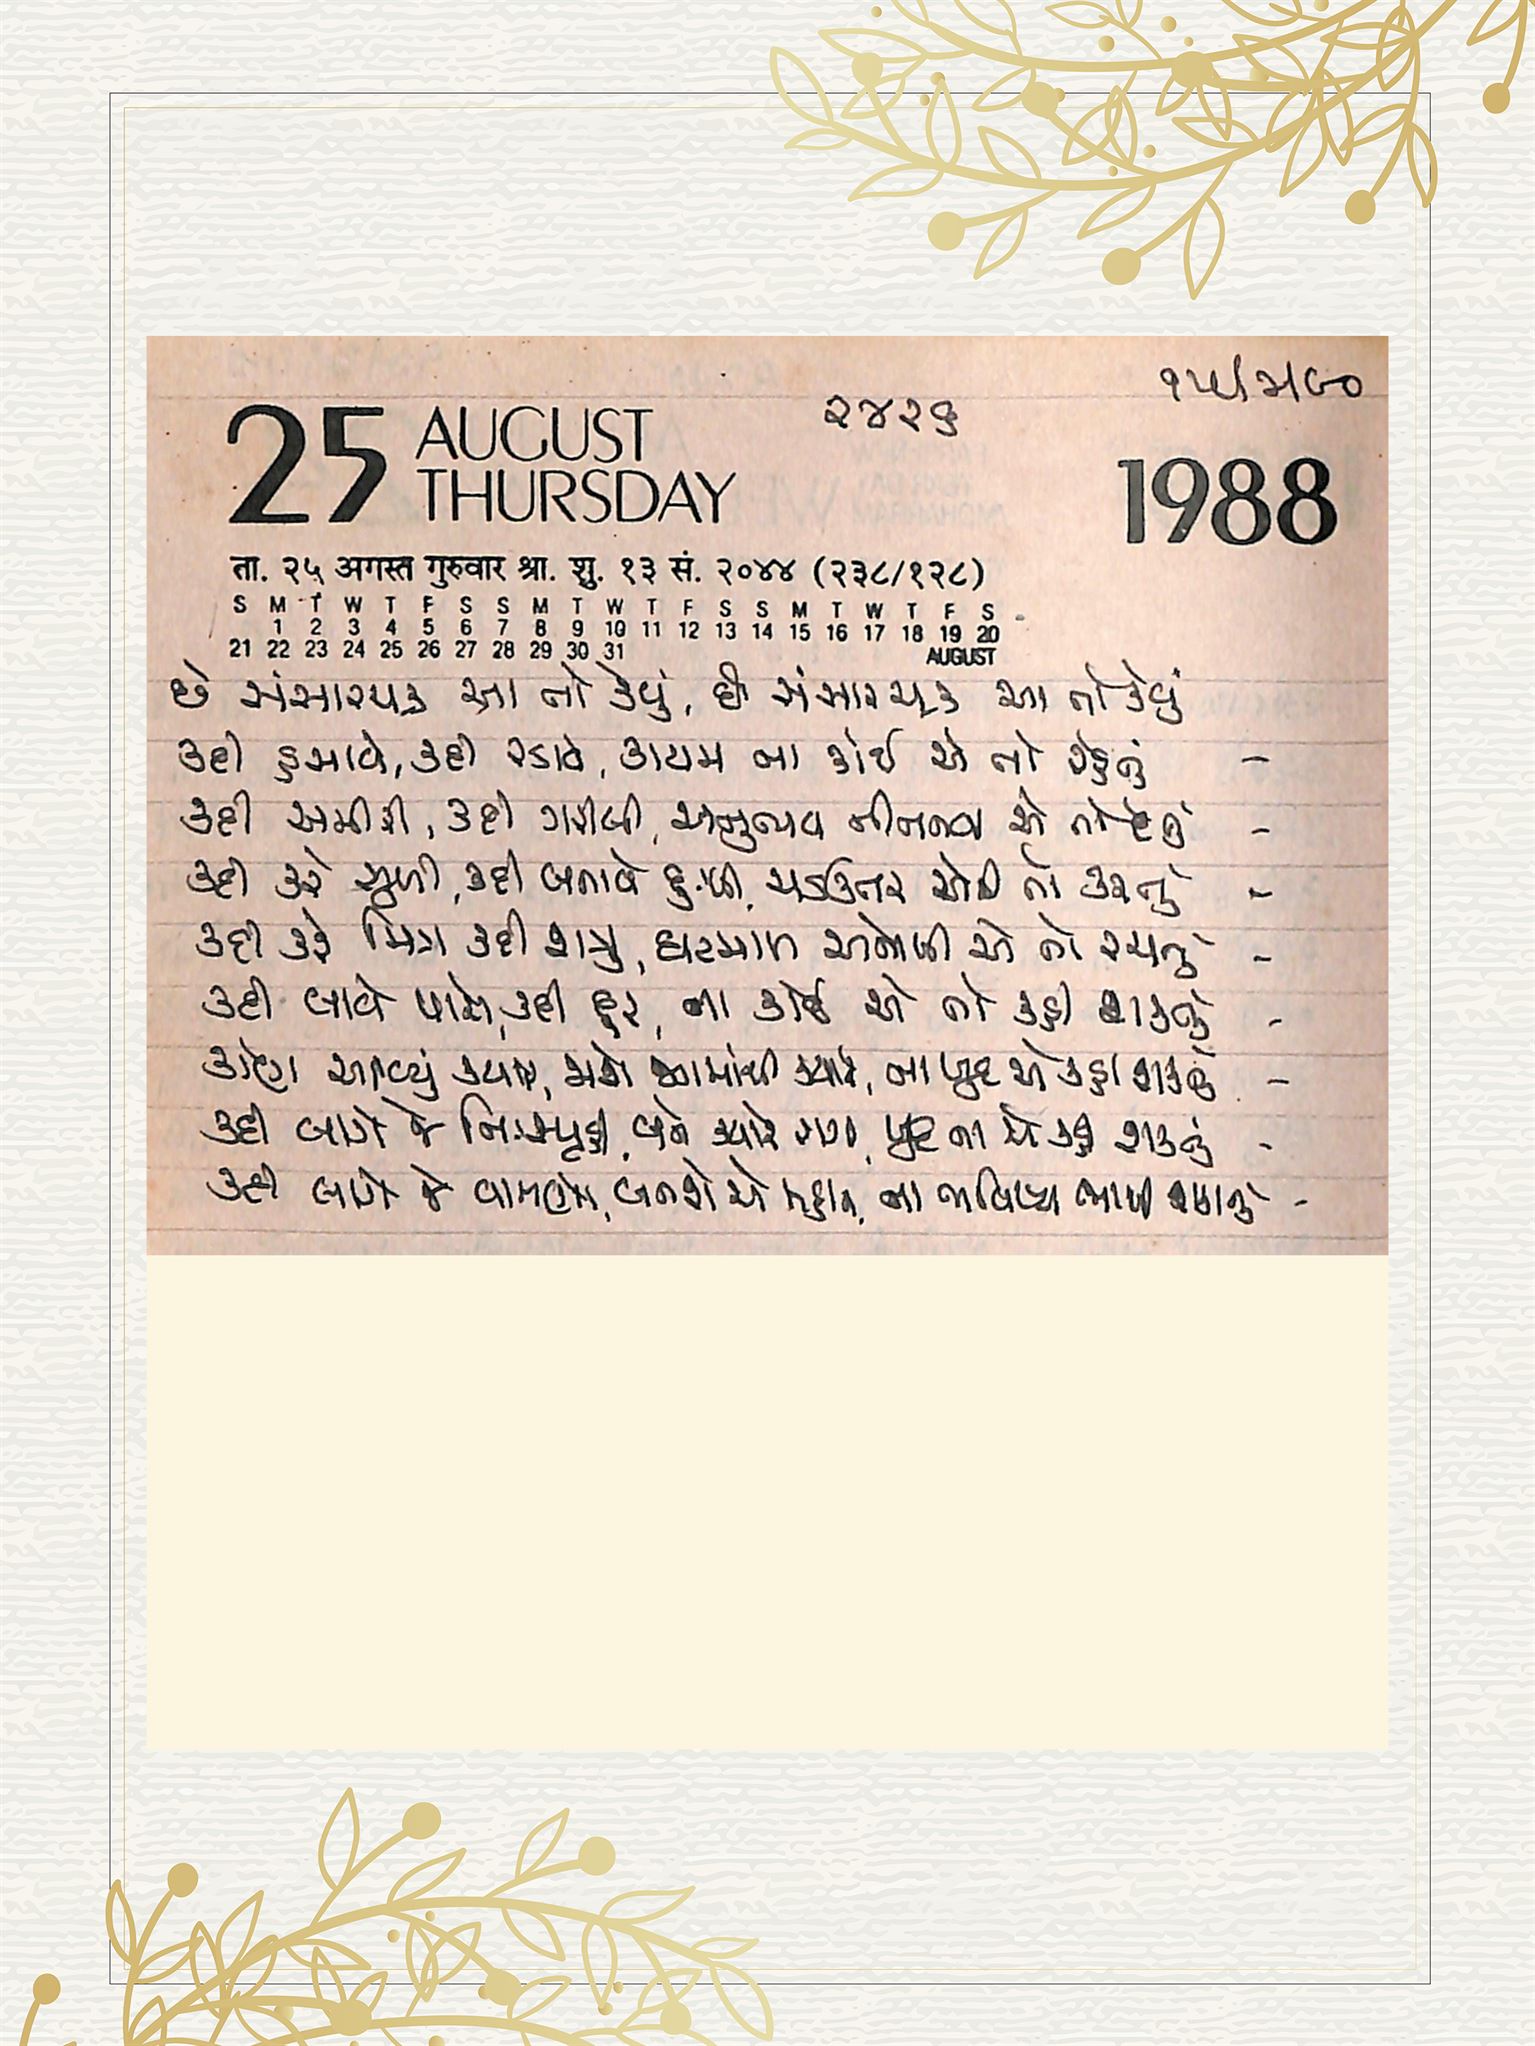 ૧૫/૩/૯૦
૨૪૨૬
25 AUGUST
THURSDAY
1988
ता. २५ अगस्त गुरुवार श्रा. शु. १३ सं. २०४४ (२३८/१२८)
S M T W T F S S M T W T F S S M T W T F S
1 2 3 4 5 6 7 8 9 10 11 12 13 14 15 16 17 18 19 20
21 22 23 24 25 26 27 28 29 30 31 AUGUST
છે સંસારચક્ર આ તો કેવું, છે સંસારચક્ર આ તો કેવું
કદી હસાવે, કદી રડાવે, કાયમ ના કોઈ એ તો રહેતું -
કદી અમીરી, કદી ગરીબી, અનુભવ નીતનવા એ તો દેતું -
કદી કરે સુખી, કદી બનાવે દુઃખી, ચડઉતર એવી તો કરતું -
કદી કરે મિત્ર કદી શત્રુ, ઘટમાળ અનોખી એ તો રચતું -
કદી લાવે પાસે, કદી દૂર, ના કોઈ એ તો કહી શકતું -
કોણ આવ્યું ક્યારે, જશે જગમાંથી ક્યારે, ના ખુદ એ કહી શકતું -
કદી લાગે જે નિઃસ્પૃહી, બને ક્યારે રાગી, ખુદ ના એ કહી શકતું -
કદી લાગે જે વામણો, બનશે એ મહાન, ના ભવિષ્ય ભાખી શકાતું -